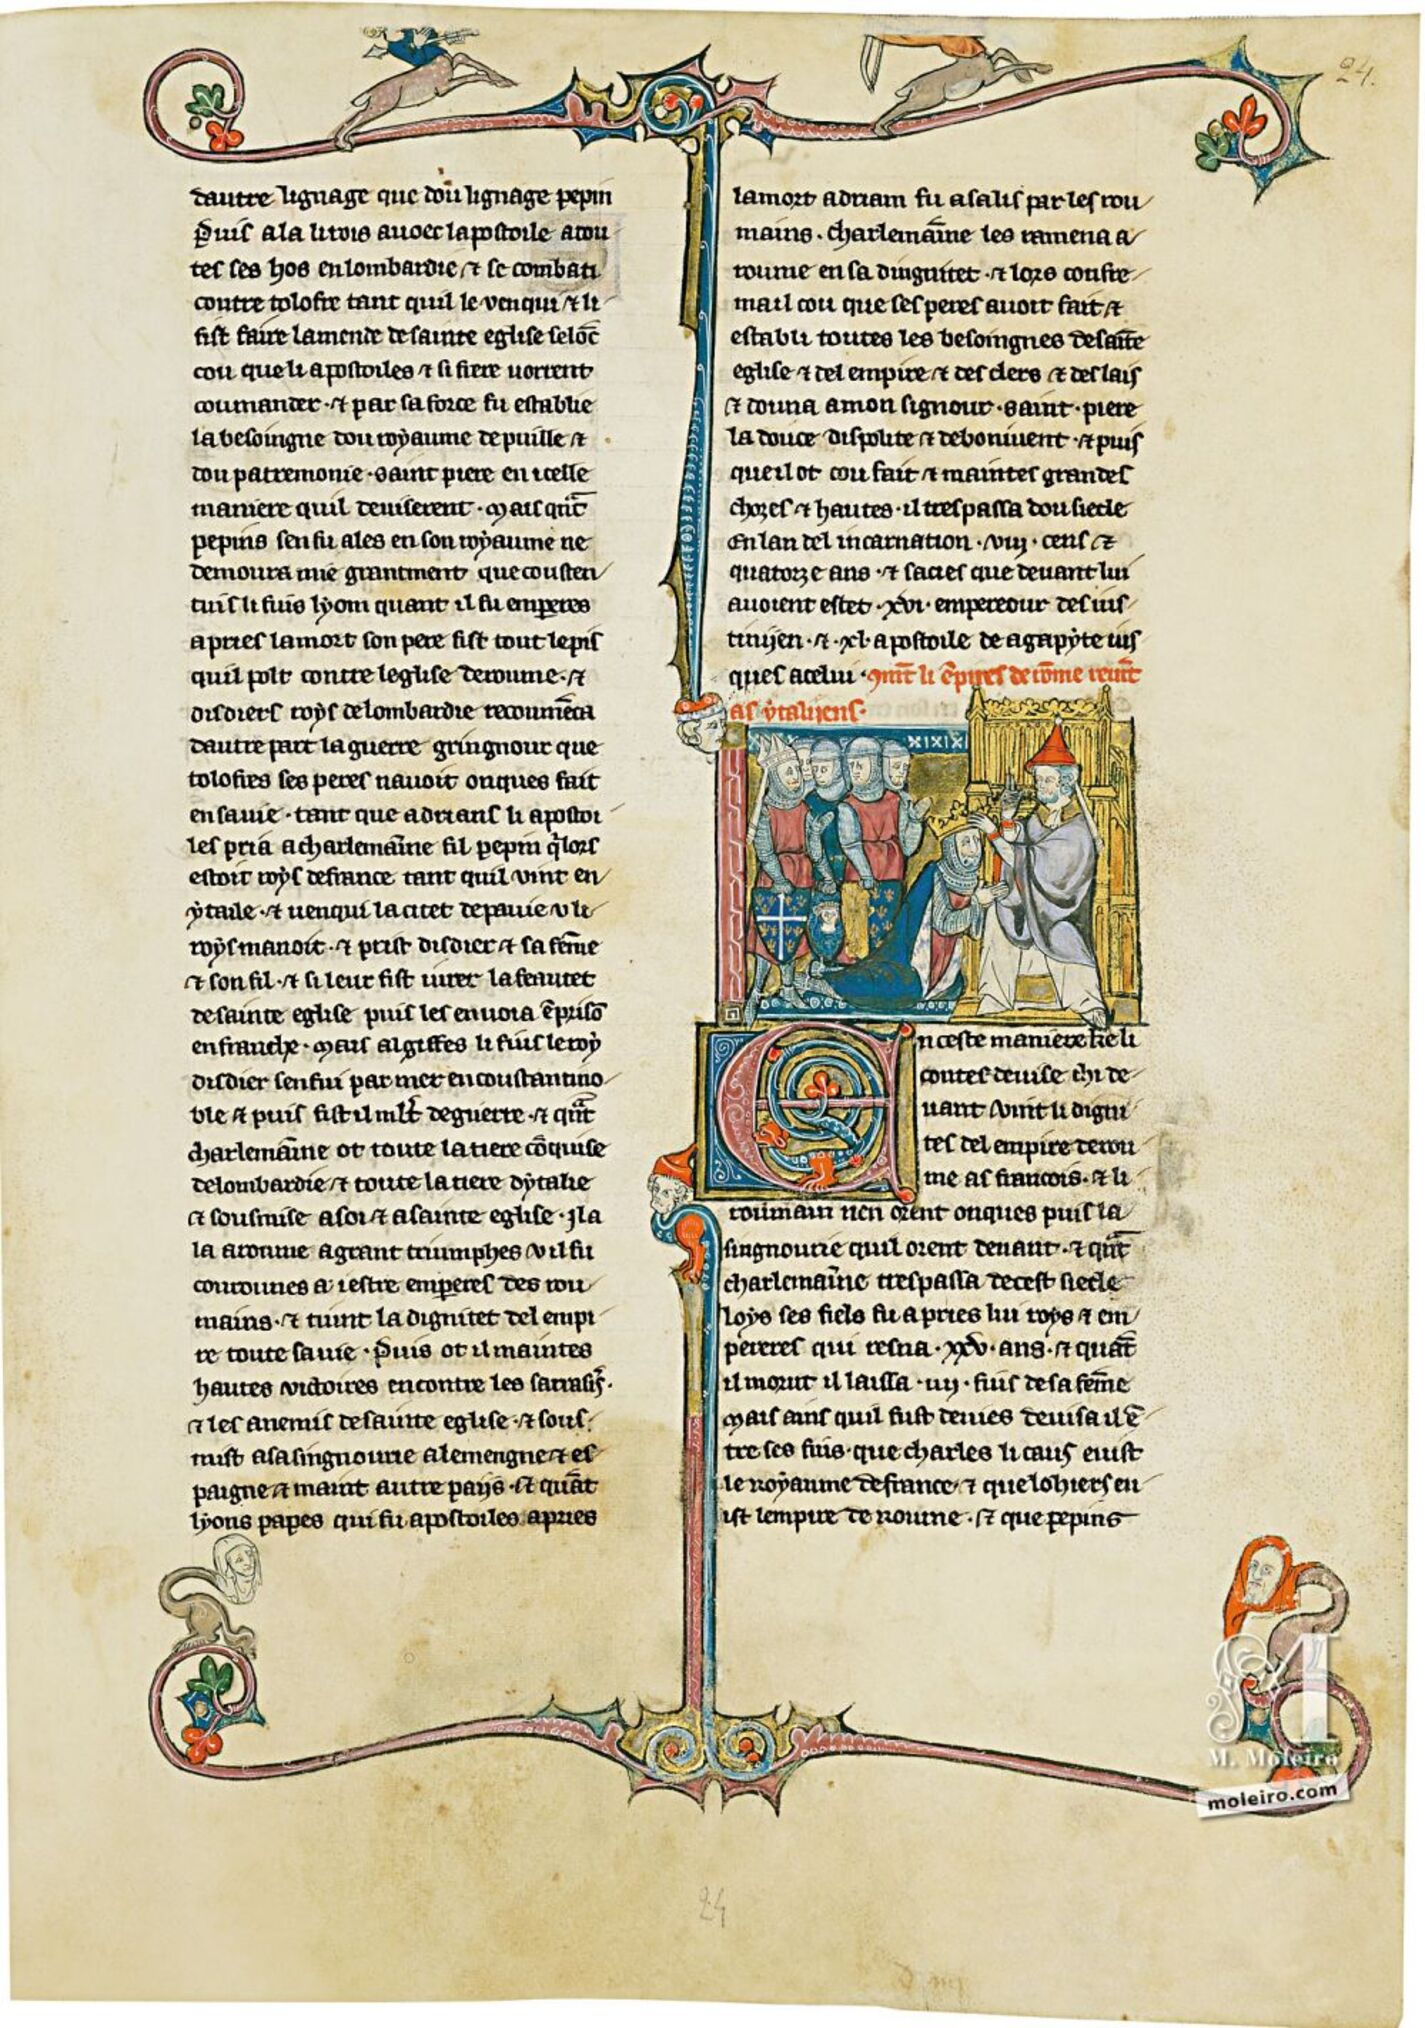 24.
dautre lignage que dou lignage pepin
Puis ala li rois auoec lapostoile atou
tes ses hos en lombardie ⁊ se combati
contre tolofre tant quil le uenqui ⁊ li
fist faire lamende de sainte eglise selōc
cou que li apostoiles ⁊ si frere uorrent
coumander · ⁊ par sa force fu establie
la besoingne dou royaume de puille ⁊
dou patremonie · saint piere en icelle
maniere quil deuiserent · Mais qūt
pepins sen fu ales en son royaume ne
demoura mie grantment que cousten
tins li fius lyom quant il fu emperes
apries la mort son pere fist tout le pis
quil polt contre leglise de roume · ⁊
disdiers roys de lombardie recoumēca
dautre part la guerre gringnour que
tolofres ses peres nauoit onques fait
en sa uie · tant que adrians li apostoi
les pria a charlemaīne fil pepin q̄ lors
estoit roys de france tant quil vint en
ytaile · ⁊ uenqui la citet de pauie v li
roys manoit · ⁊ prist disdier ⁊ sa fēme
⁊ son fil · ⁊ si leur fist iurer la feautet
de sainte eglise puis les enuoia ē prisō
en franche · Mais algisses li fius le roy
disdier senfui par mer en coustantino
ble ⁊ puis fist il mlt de guerre · ⁊ qūt
charlemaīne ot toute la tiere cōquise
de lombardie ⁊ toute la tiere dytalie
⁊ sousmise a soi ⁊ a sainte eglise · Il a
la a roume a grant triumphes v il fu
courounes a iestre emperes des rou
mains · ⁊ tuint la dignitet del empi
re toute sa uie · Puis ot il maintes
hautes victoires encontre les sarrasis ·
⁊ les anemis de sainte eglise · ⁊ sous
mist a sa singnourie alemengne ⁊ es
paigne ⁊ maint autre pays · ⁊ quāt
lyons papes qui fu apostoiles apries
la mort adriam fu asalis par les rou
mains · charlemaīne les ramena a
roume en sa dingnitet · ⁊ lors confre
mail cou que ses peres auoit fait ⁊
establi toutes les besoingnes de saīte
eglise ⁊ del empire ⁊ des clers ⁊ des lais
⁊ douna a mon signour · saint · piere
la douce dispolite ⁊ de boniuent · ⁊ puis
que il ot cou fait ⁊ maintes grandes
choses ⁊ hautes · il trespassa dou siecle
En lan del incarnation · viij · cens ⁊
quatorze ans · ⁊ sacies que deuant lui
auoient estet · xvi · empereour des ius
tinijen · ⁊ · xl · apostoile de agapyte ius
ques a celui · Qmt li ēpires de rōme reuīt
as ytalijens ·
En ceste maniere ke li
contes deuise chi de
uant vint li digni
tes del empire de rou
me as francois · ⁊ li
roumain nen orent onques puis la
singnourie quil orent deuant · ⁊ qūt
charlemaīne trespassa de cest siecle
loys ses fiels fu apries lui roys ⁊ em
pereres qui resna · xxv · ans · ⁊ quāt
il morut il laissa · iiij · fius de sa fēme
Mais ains quil fust deuies deuisa il ē
tre ses fius · que charles li caus euist
le royaume de france ⁊ que lohiers eu
ist lempire de roume · ⁊ que pepins
24
M. Moleiro
moleiro.com